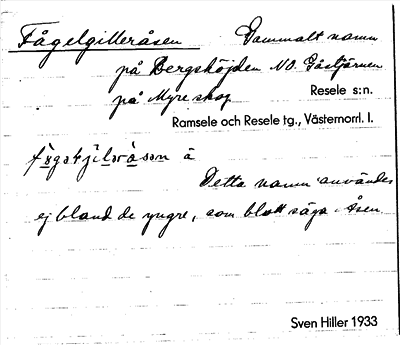 Fågelgilleråsen Gammalt namn
på Bergshöjden NO. Gåstjärnen
på Myre skog Resele s:n.
Ramsele och Resele tg., Västernorrl. l.
Detta namn användes
ej bland de yngre, som blott säga Åsen
Sven Hiller 1933